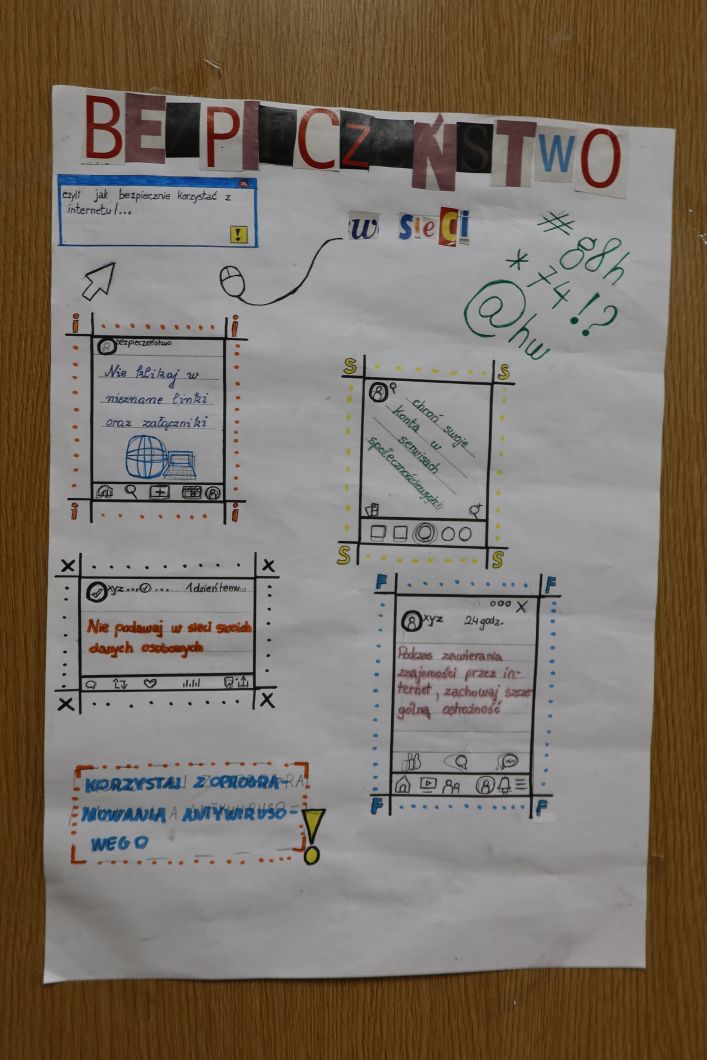 BEZPIECZEŃSTWO
czyli jak bezpiecznie korzystać z
internetu!...
!
w sieci
#g8h
*74!?
@hw
i i
bezpieczeństwo
Nie klikaj w
nieznane linki
oraz załączniki
i i
S S
chroń swoje
konta w
serwisach
społecznościowych
S S
X X
xyz ... ... 1 dzień temu
Nie podawaj w sieci swoich
danych osobowych
X X
F F
X
xyz 24 godz.
Podczas zawierania
znajomości przez in-
ternet, zachowaj szcze
gólną ostrożność
F F
KORZYSTAJ Z OPROGRA-
MOWANIA ANTYWIRUSO-
WEGO
!